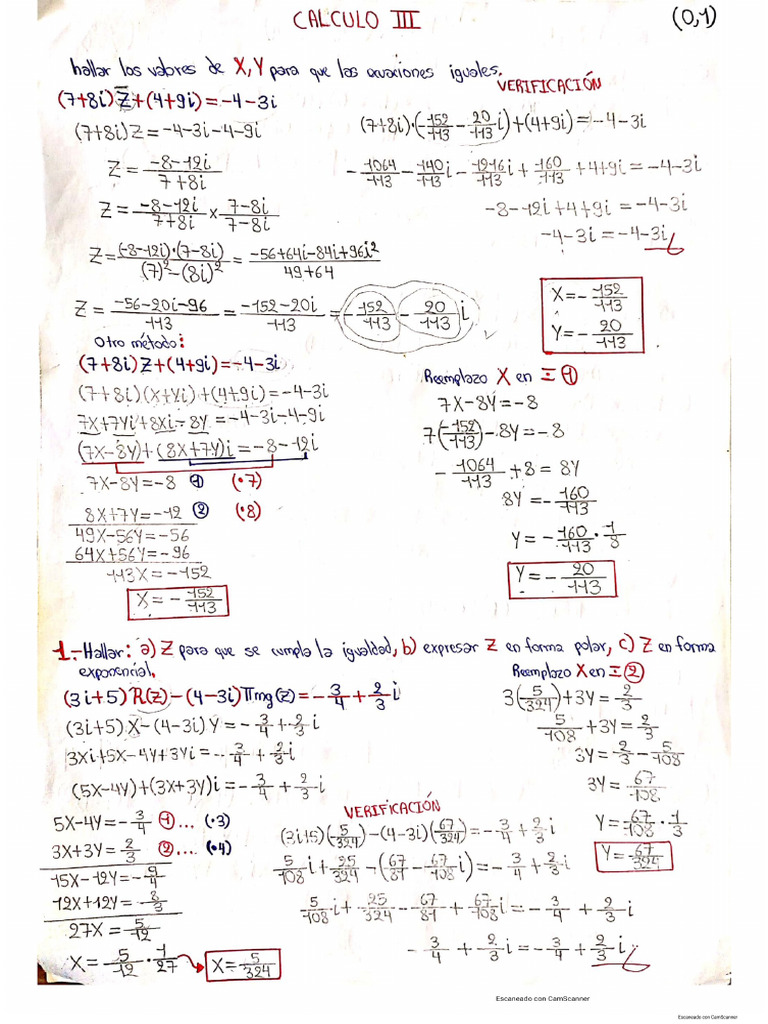 CALCULO III
(0,1)
hallar los valores de X,Y para que las ecuaciones iguales.
(7+8i) Z̅+(4+9i)=-4-3i
(7+8i)Z=-4-3i-4-9i
Z= -8-12i / 7+8i
Z= -8-12i / 7+8i x 7-8i / 7-8i
Z= (-8-12i)·(7-8i) / (7)²-(8i)² = -56+64i-84i+96i² / 49+64
Z= -56-20i-96 / 113 = -152-20i / 113 = -152/113 - 20/113 i
VERIFICACIÓN
(7+8i)·(-152/113 - 20/113 i)+(4+9i)=-4-3i
-1064/113 - 140/113 i - 1216/113 i + 160/113 +4+9i=-4-3i
-8-12i+4+9i=-4-3i
-4-3i=-4-3i
X=- 152/113
Y=- 20/113
Otro método:
(7+8i)Z+(4+9i)=-4-3i
(7+8i)(X+Yi)+(4+9i)=-4-3i
7X+7Yi+8Xi-8Y=-4-3i-4-9i
(7X-8Y)+(8X+7Y)i=-8-12i
7X-8Y=-8 ① (·7)
8X+7Y=-12 ② (·8)
49X-56Y=-56
64X+56Y=-96
113X=-152
X=- 152/113
Reemplazo X en Ξ ①
7X-8Y=-8
7(-152/113)-8Y=-8
-1064/113 +8=8Y
8Y=- 160/113
Y=- 160/113 · 1/8
Y=- 20/113
1.-Hallar: a) Z para que se cumpla la igualdad, b) expresar Z en forma polar, c) Z en forma
exponencial.
(3i+5) R(z)-(4-3i)IImg(z)=- 3/4 + 2/3 i
(3i+5) X-(4-3i) Y=- 3/4 + 2/3 i
3Xi+5X-4Y+3Yi=- 3/4 + 2/3 i
(5X-4Y)+(3X+3Y)i=- 3/4 + 2/3 i
5X-4Y=- 3/4 ①... (·3)
3X+3Y= 2/3 ②... (·4)
15X-12Y=- 9/4
12X+12Y= 8/3
27X= 5/12
X= 5/12 · 1/27
X= 5/324
Reemplazo X en Ξ ②
3(5/324)+3Y= 2/3
5/108 +3Y= 2/3
3Y= 2/3 - 5/108
3Y= 67/108
Y= 67/108 · 1/3
Y= 67/324
VERIFICACIÓN
(3i+5)(5/324)-(4-3i)(67/324)=- 3/4 + 2/3 i
5/108 i+ 25/324 -(67/81 - 67/108 i)=- 3/4 + 2/3 i
5/108 i+ 25/324 - 67/81 + 67/108 i=- 3/4 + 2/3 i
- 3/4 + 2/3 i=- 3/4 + 2/3 i
Escaneado con CamScanner
Escaneado con CamScanner